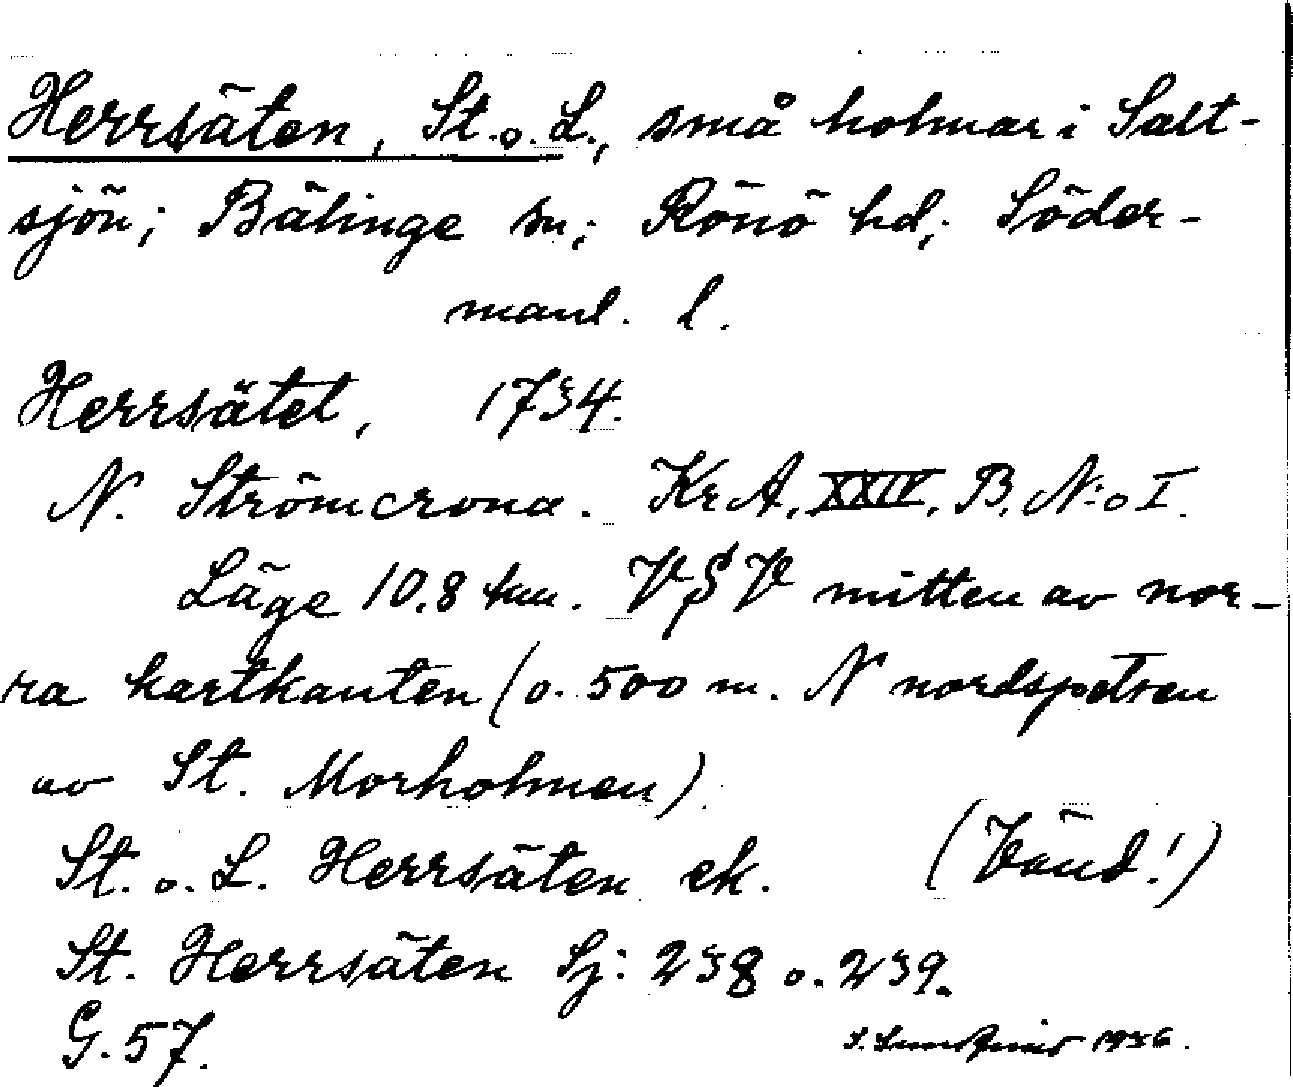 Herrsäten, St. o. L., små holmar i Salt-
sjön; Bälinge sn; Rönö hd; Söder-
manl. l.
Herrsätet, 1734.
N. Strömcrona. KrA, XXIV, B, N:o I.
Läge 10.8 km. V§V mitten av nor-
ra kartkanten (o. 500 m. N nordspetsen
av St. Morholmen)
St. o. L. Herrsäten ek. (Vänd!)
St. Herrsäten Sj: 238 o. 239.
G. 57. 1936.